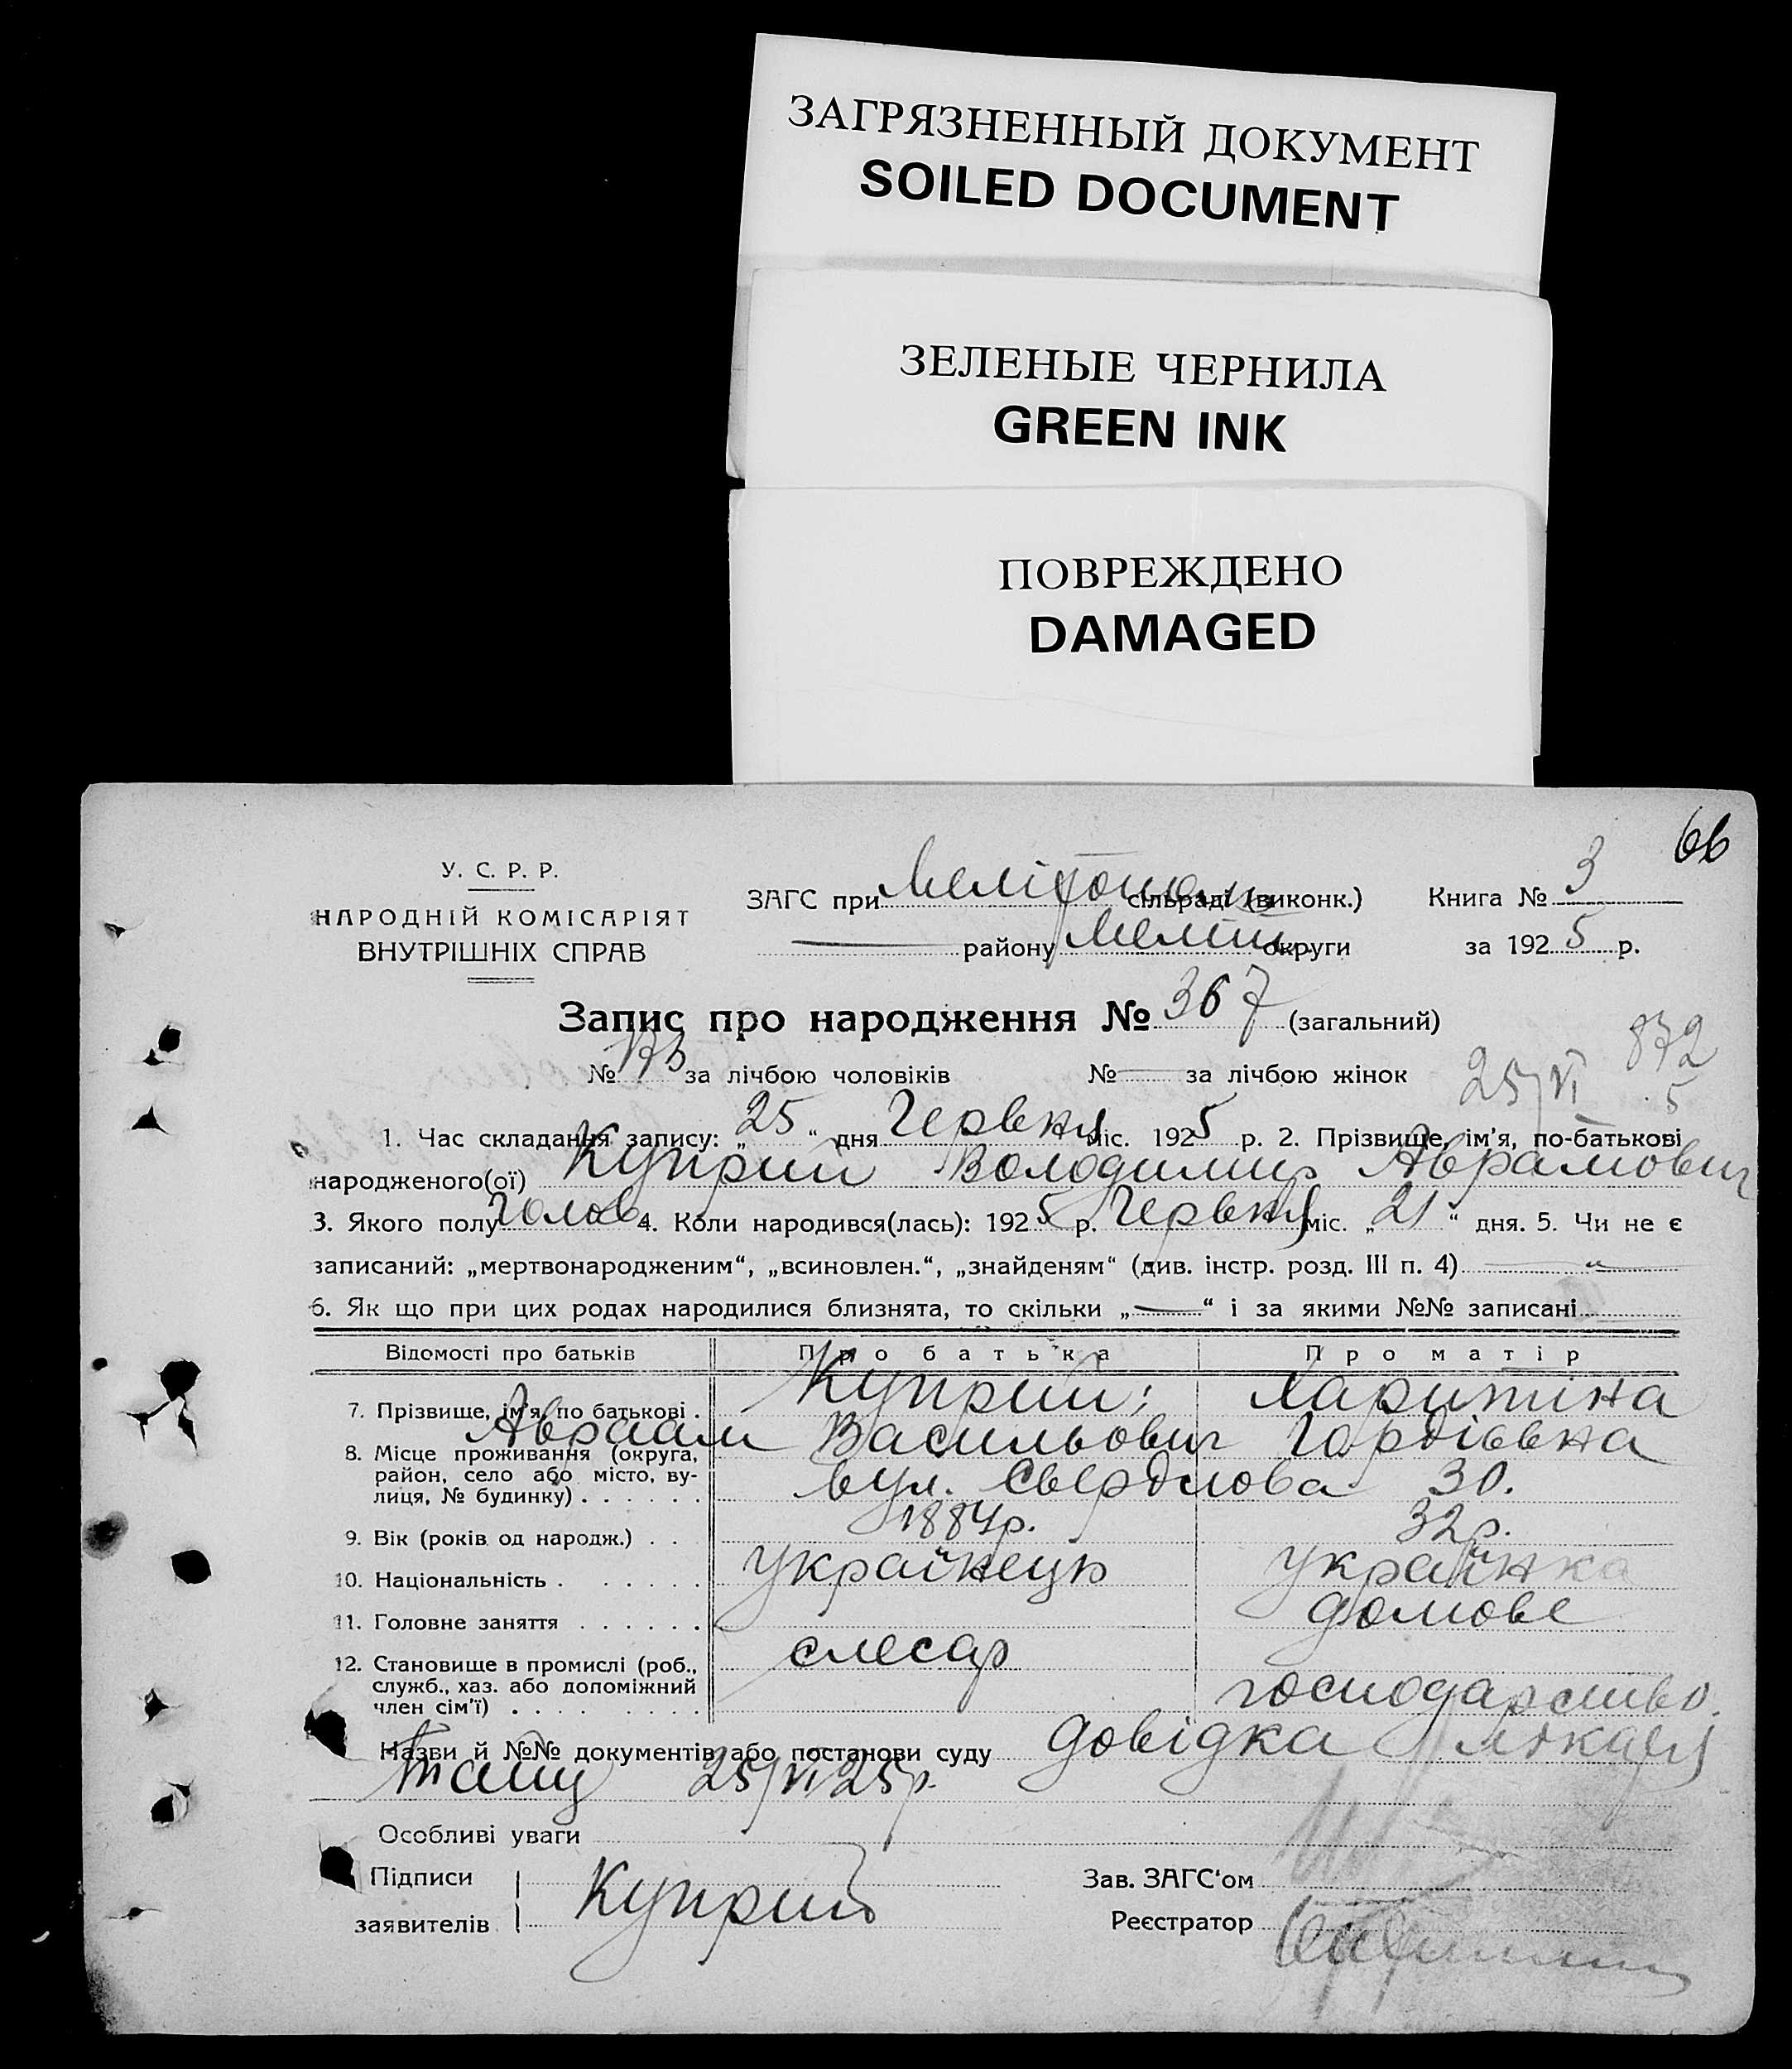 ЗАГРЯЗНЕННЫЙ ДОКУМЕНТ
SOILED DOCUMENT
ЗЕЛЕНЫЕ ЧЕРНИЛА
GREEN INK
ПОВРЕЖДЕНО
DAMAGED
66
У. С. Р. Р.
НАРОДНІЙ КОМІСАРІЯТ
ВНУТРІШНІХ СПРАВ
ЗАГС при Мелітопол сільраді (виконк.) Книга № 3
району Меліт. округи за 1925 р.
Запис про народження № 367 (загальний)
872
№ за лічбою чоловіків № за лічбою жінок 25/VI 5
1. Час складання запису: „25“ дня Червня міс. 1925 р. 2. Прізвище, ім’я, по-батькові
народженого(ої) Куприй Володимир Аврамович
3. Якого полу чолов. 4. Коли народився(лась): 1925 р. Червня міс. „21“ дня. 5. Чи не є
записаний: „мертвонародженим“, „всиновлен.“, „знайденям“ (див. інстр. розд. III п. 4) — „ —
6. Як що при цих родах народилися близнята, то скільки „—“ і за якими №№ записані
Відомості про батьків Про батька Про матір
7. Прізвище, ім’я, по батькові . Куприй; Харитіна
Авраам Васильович Гордіївна
8. Місце проживання (округа,
район, село або місто, ву-
лиця, № будинку) . . . . . . вул. Свердлова 30.
9. Вік (років од народж.) . . 1884р. 32р.
10. Національність . . . . . . українець українка
11. Головне заняття . . . . . . домове
12. Становище в промислі (роб., слесар
служб., хаз. або допоміжний господарство.
член сім’ї) . . . . . . .
Назви й №№ документів або постанови суду довідка
25/VI 25р.
Особливі уваги
Підписи
заявителів Куприй
Зав. ЗАГС‘ом
Реєстратор